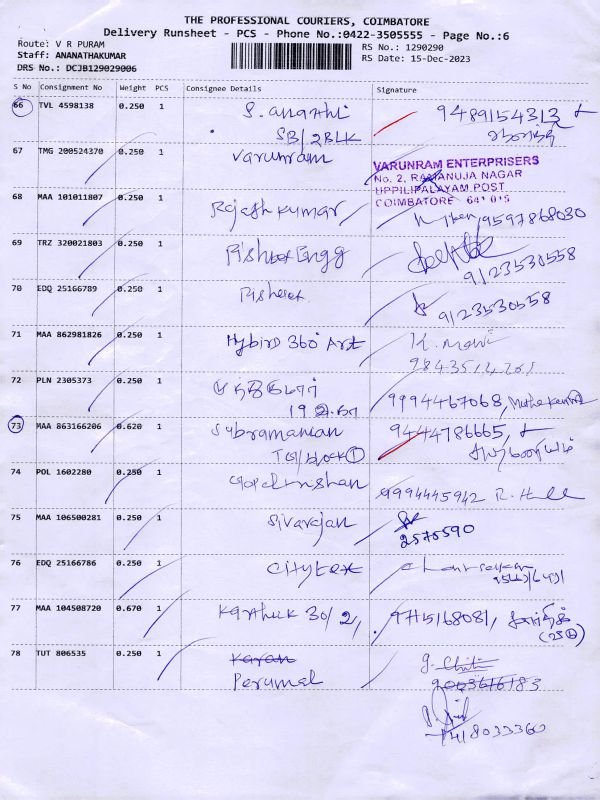 THE PROFESSIONAL COURIERS, COIMBATORE
Delivery Runsheet - PCS - Phone No.:0422-3505555 - Page No.:6
Route: V R PURAM
Staff: ANANATHAKUMAR
DRS No.: DCJB129029006
RS No.: 1290290
RS Date: 15-Dec-2023
S No Consignment No Weight PCS Consignee Details Signature
66 TVL 4598138 0.250 1 S. Ananthi 9489154313
SB/2BLK
67 TMG 200524370 0.250 1 Varunram
VARUNRAM ENTERPRISERS
No. 2, RAMANUJA NAGAR
UPPILIPALAYAM POST
COIMBATORE 641 015
68 MAA 101011807 0.250 1 Rajesh Kumar 9597868030
69 TRZ 320021803 0.250 1 Engg
9123530558
70 EDQ 25166789 0.250 1
9123530558
71 MAA 862981826 0.250 1 Hybird 360° Art K. Mani
72 PLN 2305373 0.250 1 9994467068,
73 MAA 863166206 0.620 1 Subramanian 9444786665,
74 POL 1602280 0.250 1 9994445942
75 MAA 106500281 0.250 1 Sivarajan
2575590
76 EDQ 25166786 0.250 1 Citytex
77 MAA 104508720 0.670 1 Karthick 30/2, 9715168081,
78 TUT 806535 0.250 1 Karan
Perumal
9003616183
7418033360